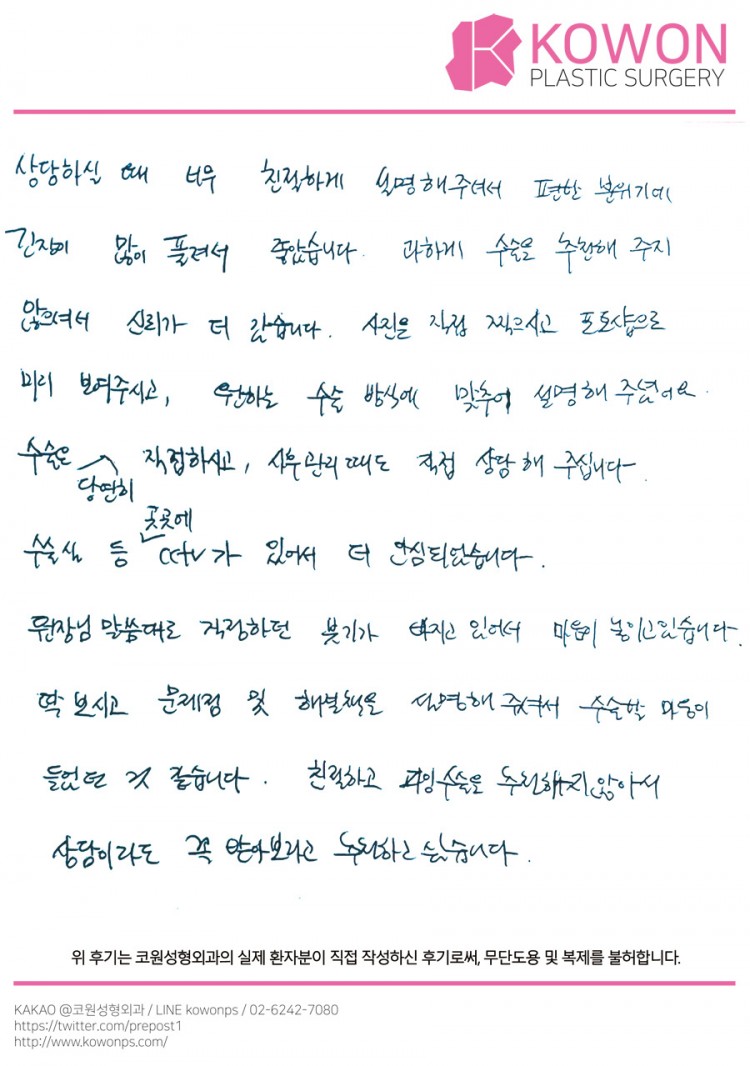 KOWON
PLASTIC SURGERY
상담하실 때 너무 친절하게 설명해주셔서 편한 분위기에
긴장이 많이 풀려서 좋았습니다. 과하게 수술을 추천해 주지
않으셔서 신뢰가 더 갔습니다. 사진을 직접 찍으시고 포토샵으로
미리 보여주시고, 원하는 수술 방식에 맞추어 설명해 주셨어요.
수술은 당연히 직접하시고, 사후관리 때도 직접 상담해 주십니다.
수술실 등 곳곳에 cctv가 있어서 더 안심되었습니다.
원장님 말씀대로 걱정하던 붓기가 빠지고 있어서 마음이 놓이고있습니다.
딱 보시고 문제점 및 해결책을 설명해 주셔서 수술할 마음이
들었던 것 같습니다. 친절하고 과잉수술을 추천하지않아서
상담이라도 꼭 받아보라고 추천하고 싶습니다.
위 후기는 코원성형외과의 실제 환자분이 직접 작성하신 후기로써, 무단도용 및 복제를 불허합니다.
KAKAO @코원성형외과 / LINE kowonps / 02-6242-7080
https://twitter.com/prepost1
http://www.kowonps.com/